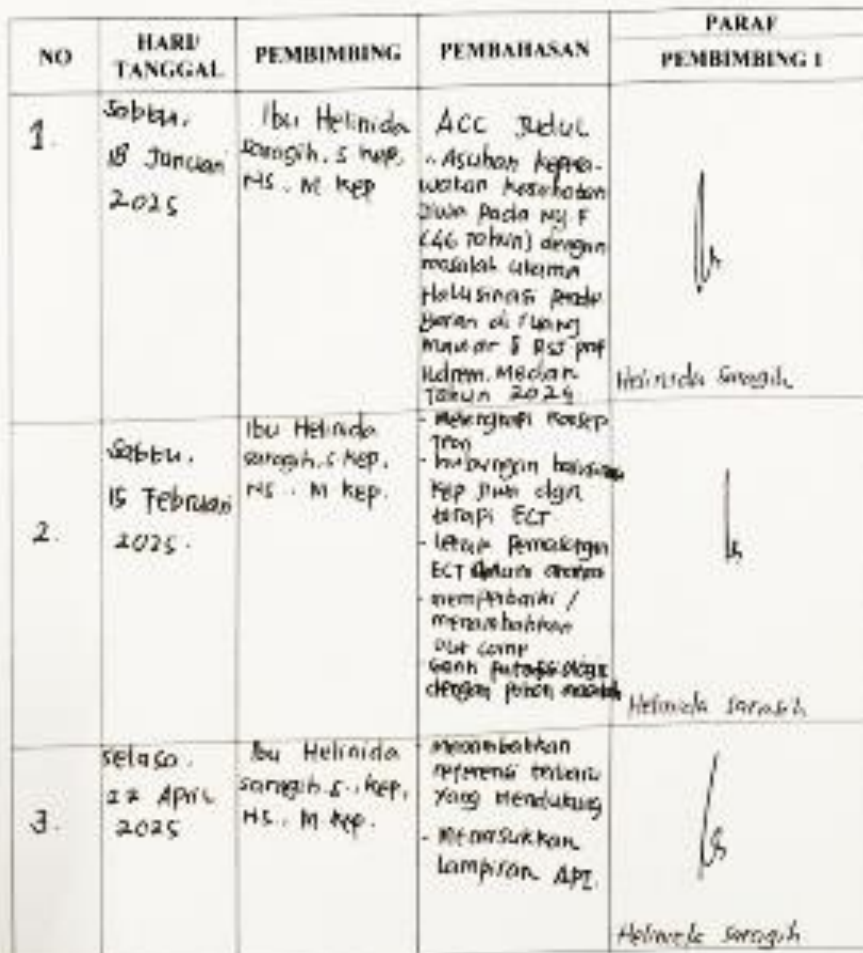 NO
HARI/
TANGGAL
PEMBIMBING
PEMBAHASAN
PARAF
PEMBIMBING 1
1.
Sabtu,
18 Januari
2025
Ibu Helinida
Saragih. S Kep,
NS. M Kep
ACC Judul
"Asuhan kepera-
watan kesehatan
Jiwa Pada Ny F
(46 Tahun) dengan
masalah utama
Halusinasi Pende
ngaran di ruang
Mawar RSJ Prof
Ildrem. Medan
Tahun 2025
Helinida Saragih
2.
Sabtu.
15 Februari
2025.
Ibu Helinida
Saragih. S Kep.
NS. M Kep.
- Melengkapi Konsep
- hubungan
Kep Jiwa dgn
terapi ECT
- letak Pemasangan
ECT
- memperbaiki /
menambahkan
out come
- Ganti
dengan pohon masalah
Helinida Saragih
3.
Selasa.
22 April
2025
Ibu Helinida
Saragih. S. Kep,
NS. M Kep.
- menambahkan
referensi terbaru
Yang Mendukung
- Memasukkan
Lampiran API.
Helinida Saragih